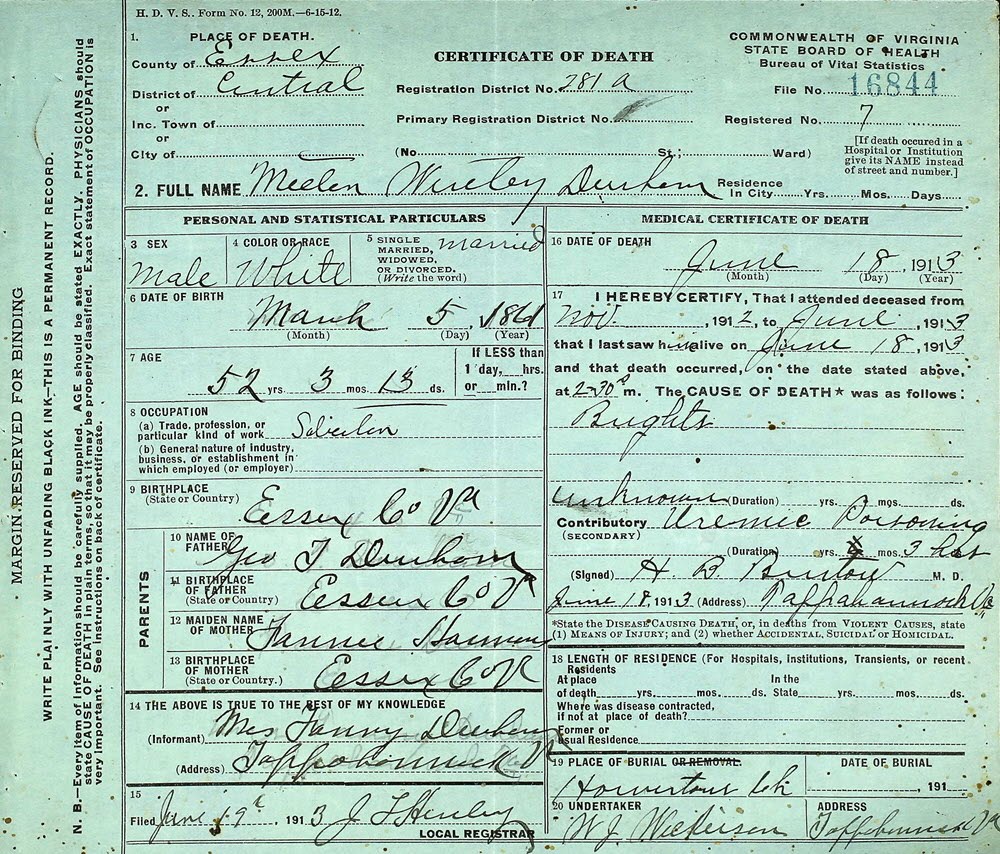 H. D. V. S.. Form No. 12, 200M.—6-15-12.
MARGIN RESERVED FOR BINDING
WRITE PLAINLY WITH UNFADING BLACK INK—THIS IS A PERMANENT RECORD.
N. B.—Every item of information should be carefully supplied. AGE should be stated EXACTLY. PHYSICIANS should
state CAUSE OF DEATH in plain terms, so that it may be properly classified. Exact statement of OCCUPATION is
very important. See instructions on back of certificate.
1. PLACE OF DEATH.
County of Essex
District of Central
or
Inc. Town of
or
City of
CERTIFICATE OF DEATH
Registration District No. 281 A
Primary Registration District No.
(No. St.; Ward)
COMMONWEALTH OF VIRGINIA
STATE BOARD OF HEALTH
Bureau of Vital Statistics
File No. 16844
Registered No. 7
[If death occured in a
Hospital or Institution
give its NAME instead
of street and number.]
2. FULL NAME Durham
Residence
In City Yrs. Mos. Days
PERSONAL AND STATISTICAL PARTICULARS
3 SEX
Male
4 COLOR OR RACE
White
5 SINGLE
MARRIED,
WIDOWED,
OR DIVORCED.
(Write the word)
married
6 DATE OF BIRTH
March 5, 1861
(Month) (Day) (Year)
7 AGE
52 yrs. 3 mos. 13 ds.
If LESS than
1 day, hrs.
or min.?
8 OCCUPATION
(a) Trade, profession, or
particular kind of work
(b) General nature of industry,
business, or establishment in
which employed (or employer)
9 BIRTHPLACE
(State or Country)
Essex Co Va
PARENTS
10 NAME OF
FATHER
Geo T Durham
11 BIRTHPLACE
OF FATHER
(State or Country)
Essex Co Va
12 MAIDEN NAME
OF MOTHER
Fannie
13 BIRTHPLACE
OF MOTHER
(State or Country.)
Essex Co Va
14 THE ABOVE IS TRUE TO THE BEST OF MY KNOWLEDGE
(Informant) Mrs Fanny Durham
(Address) Tappahannock Va
15
Filed June 19th, 1913 J T Henley
LOCAL REGISTRAR
MEDICAL CERTIFICATE OF DEATH
16 DATE OF DEATH
June 18, 1913
(Month) (Day) (Year)
17 I HEREBY CERTIFY, That I attended deceased from
Nov. , 1912, to June , 1913
that I last saw him alive on June 18, 1913
and that death occurred, on the date stated above,
at 2-30 m. The CAUSE OF DEATH* was as follows:
Brights
unknown (Duration) yrs. mos. ds.
Contributory Uremic Poisoning
(SECONDARY)
(Duration) yrs. mos. 3
(Signed) H. B. M. D.
June 18, 1913 (Address) Tappahannock Va
*State the DISEASE CAUSING DEATH, or, in deaths from VIOLENT CAUSES, state
(1) MEANS OF INJURY; and (2) whether ACCIDENTAL, SUICIDAL or HOMICIDAL.
18 LENGTH OF RESIDENCE (For Hospitals, Institutions, Transients, or recent
Residents
At place In the
of death yrs. mos. ds. State yrs. mos. ds.
Where was disease contracted,
if not at place of death?
Former or
usual Residence
19 PLACE OF BURIAL OR REMOVAL.
Howertons
DATE OF BURIAL
, 191
20 UNDERTAKER
W. J. Wilkerson
ADDRESS
Tappahannock Va